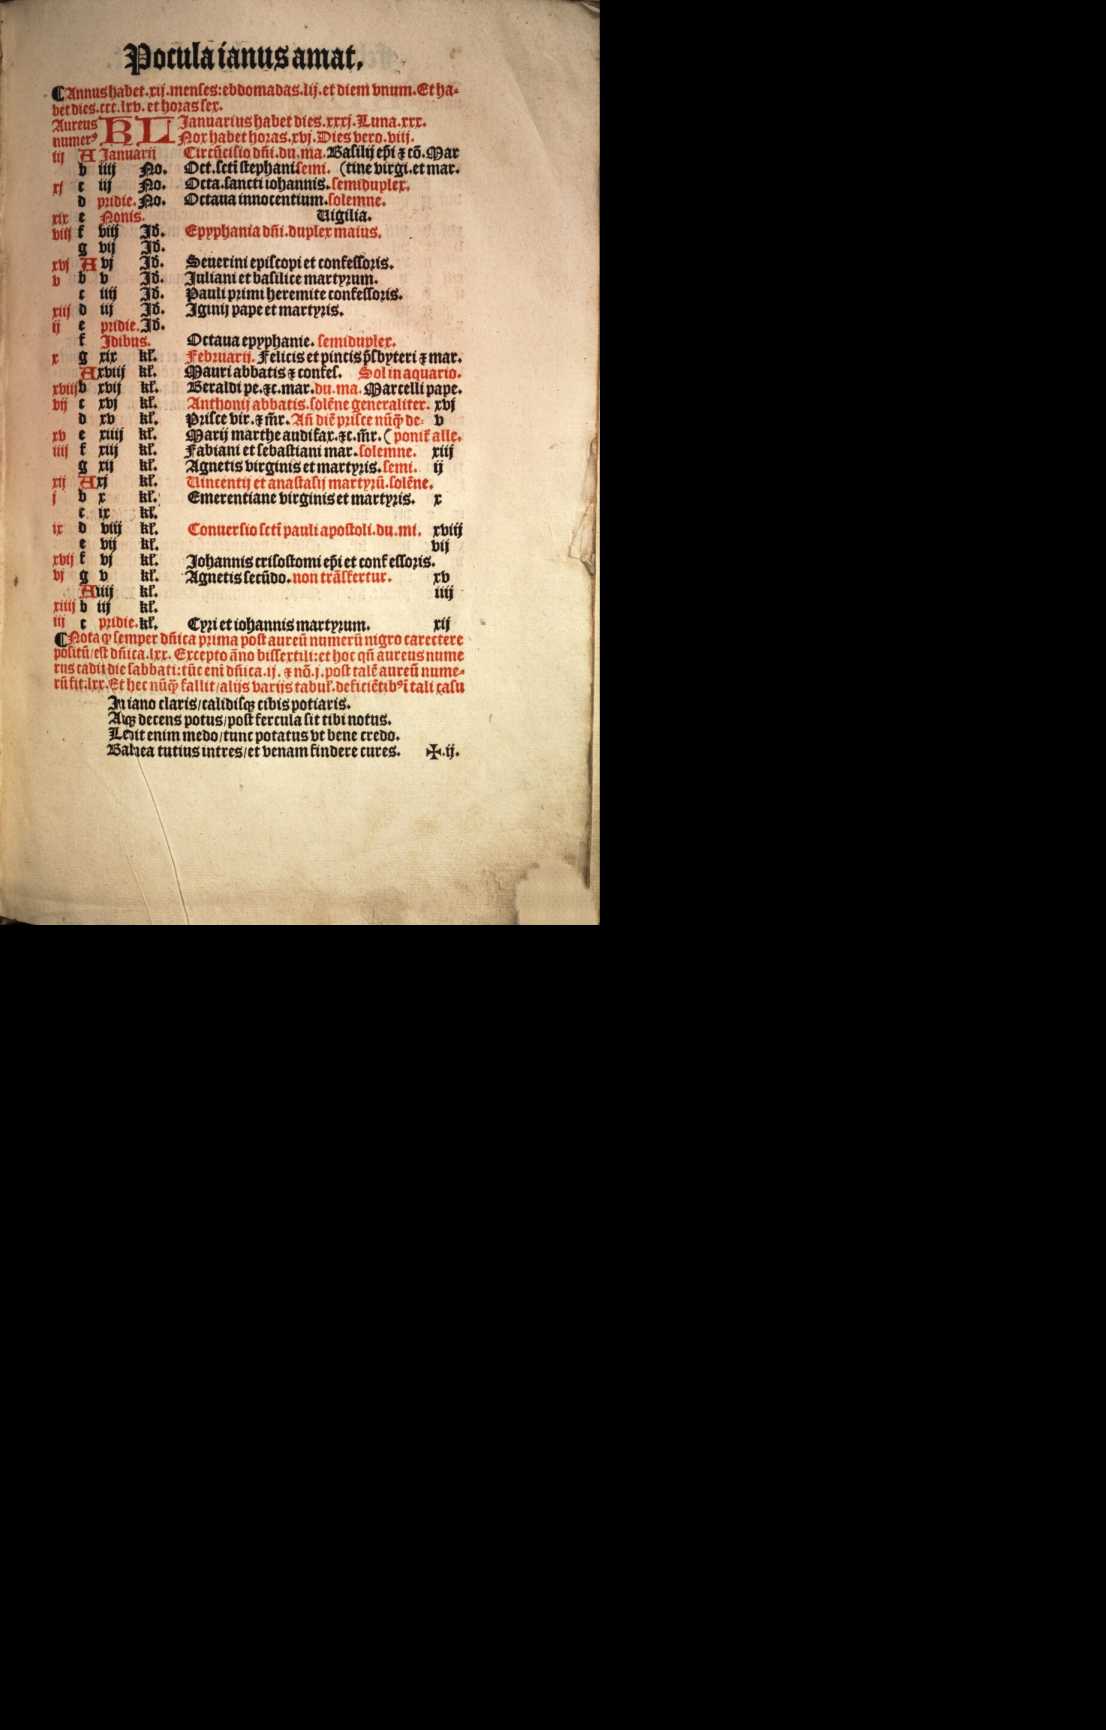 Pocula ianus amat.
¶ Annus habet .xij. menses: ebdomadas .lij. et diem vnum. Et ha-
bet dies .ccc.lxv. et horas sex.
Aureus KL Januarius habet dies .xxxj. Luna .xxx.
numerꝰ Nox habet horas .xvj. Dies vero .viij.
iij A Januarij Circũcisio dñi. du. ma. Basilij ep̃i ⁊ cõ. Mar
b iiij No. Oct. sctĩ stephani semi. (tine virgi. et mar.
xj c iij No. Octa. sancti iohannis. semiduplex.
d pridie. No. Octaua innocentium. solemne.
xix e Nonis. Uigilia.
viij f viij Jd. Epyphania dñi. duplex maius.
g vij Jd.
xvj A vj Jd. Seuerini episcopi et confessoris.
v b v Jd. Juliani et basilice martyrum.
c iiij Jd. Pauli primi heremite confessoris.
xiij d iij Jd. Iginij pape et martyris.
ij e pridie. Jd.
f Idibus. Octaua epyphanie. semiduplex.
x g xix kl̃. Februarij. Felicis et pincis p̃sbyteri ⁊ mar.
A xviij kl̃. Mauri abbatis ⁊ confes. Sol in aquario.
xviij b xvij kl̃. Beraldi pe. ⁊c. mar. du. ma. Marcelli pape.
vij c xvj kl̃. Anthonij abbatis. solẽne generaliter. xvj
d xv kl̃. Prisce vir. ⁊ m̃r. Añ diẽ prisce nũq̃ de- v
xv e xiiij kl̃. Marij marthe audifax. ⁊c. m̃r. ( ponit̃ alle.
iiij f xiij kl̃. Fabiani et sebastiani mar. solemne. xiij
g xij kl̃. Agnetis virginis et martyris. semi. ij
xij A xj kl̃. Uincentij et anastasij martyrũ. solẽne.
j b x kl̃. Emerentiane virginis et martyris. x
c ix kl̃.
ix d viij kl̃. Conuersio sctĩ pauli apostoli. du. mi. xviij
e vij kl̃. vij
xvij f vj kl̃. Johannis crisostomi ep̃i et confessoris.
vj g v kl̃. Agnetis secũdo. non trãsfertur. xv
A iiij kl̃. iiij
xiiij b iij kl̃.
iij c pridie. kl̃. Cyri et iohannis martyrum. xij
¶ Nota ꝙ semper dñica prima post aureũ numerũ nigro carectere
positũ/est dñica .lxx. Excepto ãno bissextili: et hoc qñ aureus nume
rus cadit die sabbati: tũc enĩ dñica .ij. ⁊ nõ .j. post talẽ aureũ nume-
rũ fit .lxx. Et hec nũq̃ fallit/alijs varijs tabul̃. deficiẽtibꝰ ĩ tali casu
In iano claris/calidisqꝫ cibis potiaris.
Atqꝫ decens potus/post fercula sit tibi notus.
Ledit enim medo/tunc potatus vt bene credo.
Balnea tutius intres/et venam findere cures. ✠.ij.